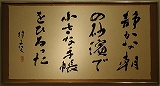 静かな朝
の砂濱で
小さな手帳
をひろった